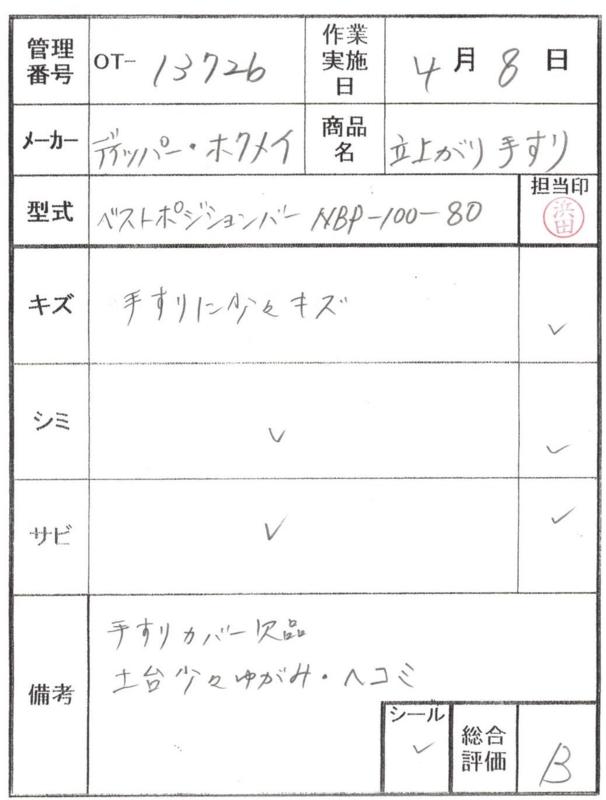 管理番号 OT- 13726 作業実施日 4月8日
メーカー ディッパー・ホクメイ 商品名 立上がり手すり
型式 ベストポジションバー NBP-100-80 担当印 浜田
キズ 手すりに少々キズ ✓
シミ ✓ ✓
サビ ✓ ✓
備考 手すりカバー欠品
土台少々ゆがみ・ヘコミ
シール ✓ 総合評価 B